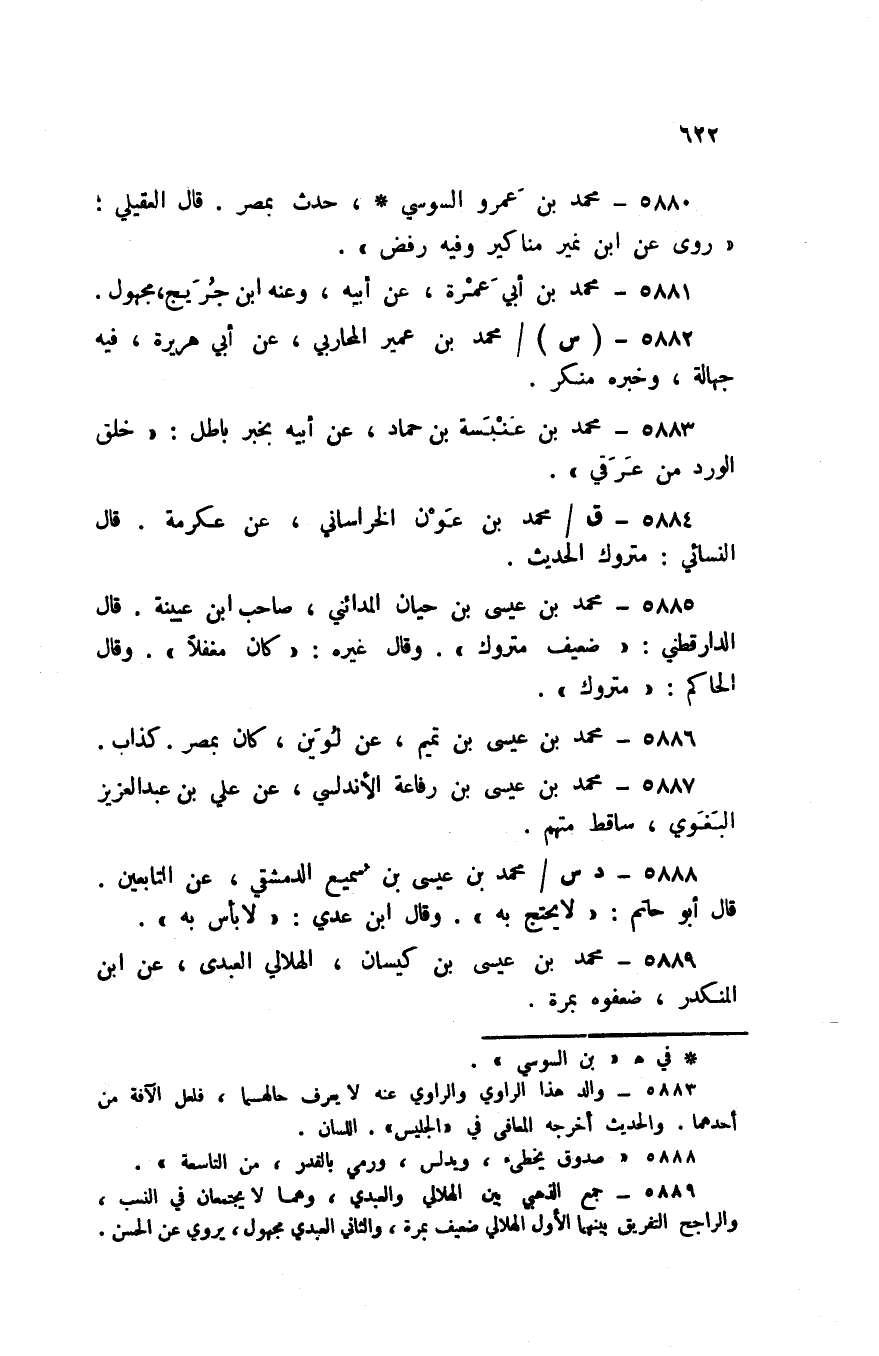 ٦٢٢
٥٨٨٠ – محمد بن عَمرو السوسي * ، حدث بمصر . قال العقيلي :
« روى عن ابن نمير مناكير وفيه رفض » .
٥٨٨١ – محمد بن أبي عَمْرة ، عن أبيه ، وعنه ابن جُرَيج،مجهول .
٥٨٨٢ – ( س ) / محمد بن عمير المحاربي ، عن أبي هريرة ، فيه
جهالة ، وخبره منكر .
٥٨٨٣ – محمد بن عَنْبَسة بن حماد ، عن أبيه بخبر باطل : « خلق
الورد من عَرَقي » .
٥٨٨٤ – ق / محمد بن عَوْن الخراساني ، عن عكرمة . قال
النسائي : متروك الحديث .
٥٨٨٥ – محمد بن عيسى بن حيان المدائني ، صاحب ابن عيينة . قال
الدارقطني : « ضعيف متروك » . وقال غيره : « كان مغفلاً » . وقال
الحاكم : « متروك » .
٥٨٨٦ – محمد بن عيسى بن تميم ، عن لُوَين ، كان بمصر . كذاب .
٥٨٨٧ – محمد بن عيسى بن رفاعة الأندلسي ، عن علي بن عبدالعزيز
البَغَوي ، ساقط متهم .
٥٨٨٨ – د س / محمد بن عيسى بن سُميع الدمشقي ، عن التابعين .
قال أبو حاتم : « لايحتج به » . وقال ابن عدي : « لابأس به » .
٥٨٨٩ – محمد بن عيسى بن كيسان ، الهلالي العبدى ، عن ابن
المنكدر ، ضعفوه بمرة .
* في ه « بن السوسي » .
٥٨٨٣ – والد هذا الراوي والراوي عنه لا يعرف حالهما ، فلعل الآفة من
أحدهما . والحديث أخرجه المعافى في «الجليس» . اللسان .
٥٨٨٨ « صدوق يخطىء ، ويدلس ، ورمي بالقدر ، من التاسعة » .
٥٨٨٩ – جمع الذهبي بين الهلالي والعبدي ، وهما لا يجتمعان في النسب ،
والراجح التفريق بينهما الأول الهلالي ضعيف بمرة ، والثاني العبدي مجهول ، يروي عن الحسن .